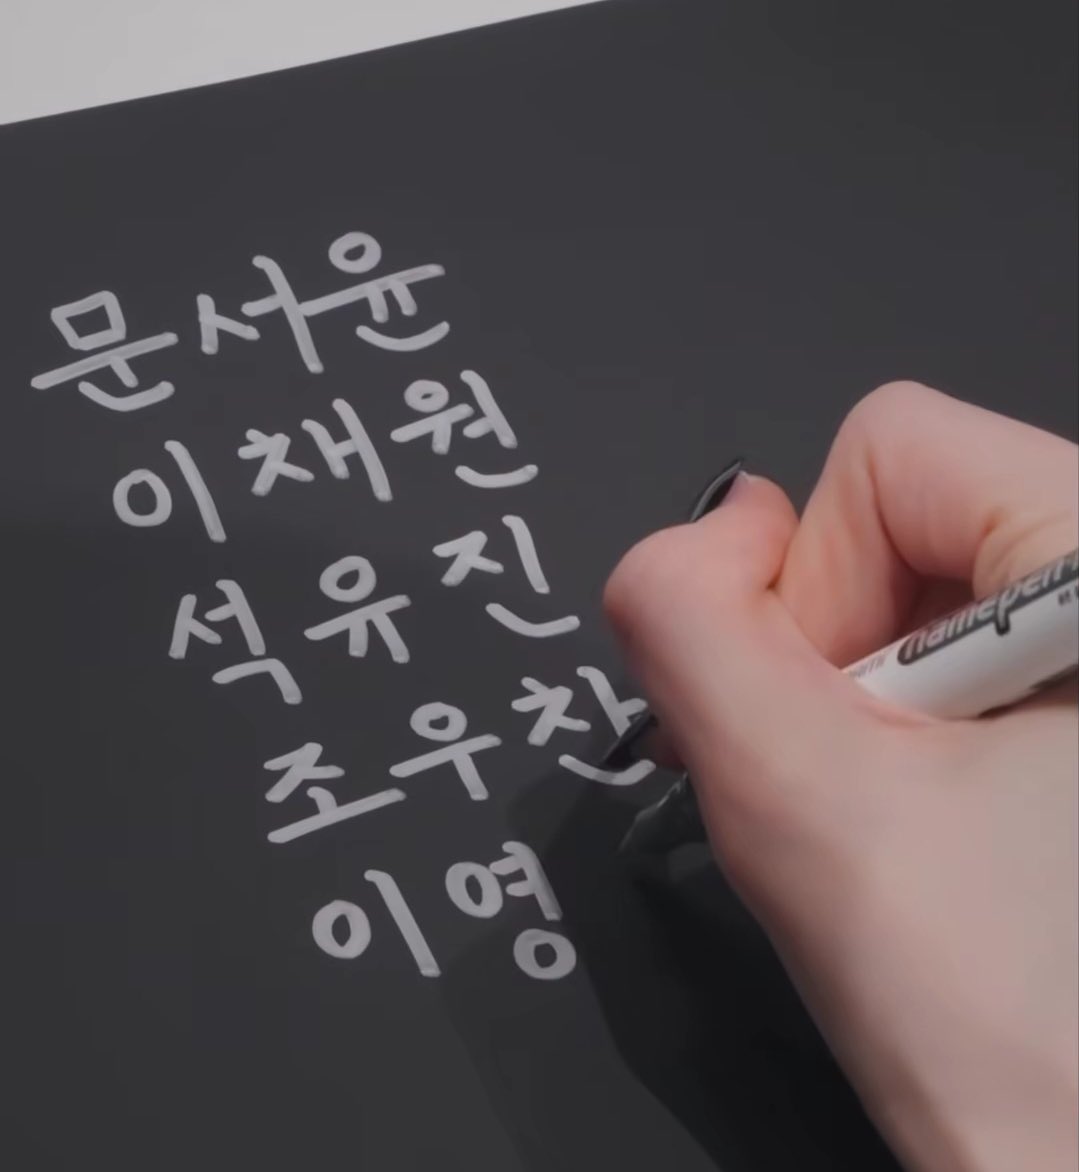 문서윤
이채원
석유진
조우찬
이영
namepen